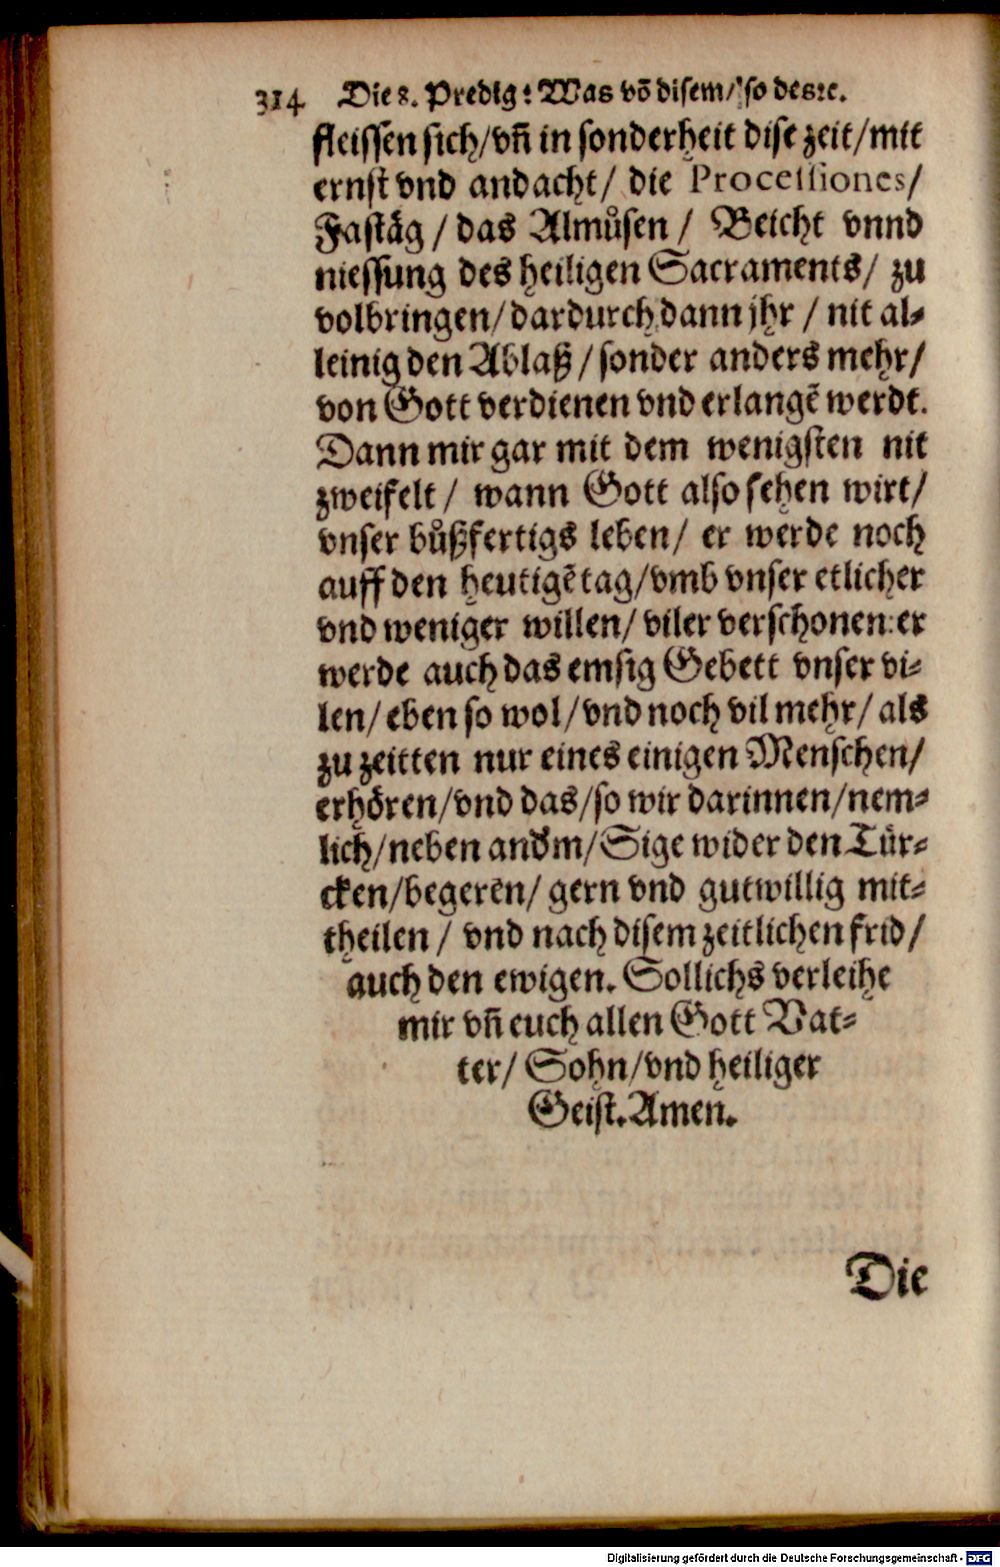 314 Die 8. Predig: Was vō disem/ so des ꝛc.
fleissen sich/vñ in sonderheit dise zeit/mit
ernst vnd andacht/ die Processiones/
Fastäg / das Almůsen / Beicht vnnd
niessung des heiligen Sacraments/ zu
volbringen/dardurch dann jhr / nit al⸗
leinig den Ablaß / sonder anders mehr/
von Gott verdienen vnd erlangẽ werdt.
Dann mir gar mit dem wenigsten nit
zweifelt / wann Gott also sehen wirt/
vnser bůßfertigs leben/ er werde noch
auff den heutigẽ tag/vmb vnser etlicher
vnd weniger willen/ viler verschonen: er
werde auch das emsig Gebett vnser vi⸗
len/ eben so wol/vnd noch vil mehr/ als
zu zeitten nur eines einigen Menschen/
erhören/vnd das/so wir darinnen/nem⸗
lich/neben andm/ Sige wider den Tür⸗
cken/begeren/ gern vnd gutwillig mit⸗
theilen / vnd nach disem zeitlichen frid/
auch den ewigen. Sollichs verleihe
mir vñ euch allen Gott Vat⸗
ter/ Sohn/vnd heiliger
Geist. Amen.
Die
Digitalisierung gefördert durch die Deutsche Forschungsgemeinschaft - DFG